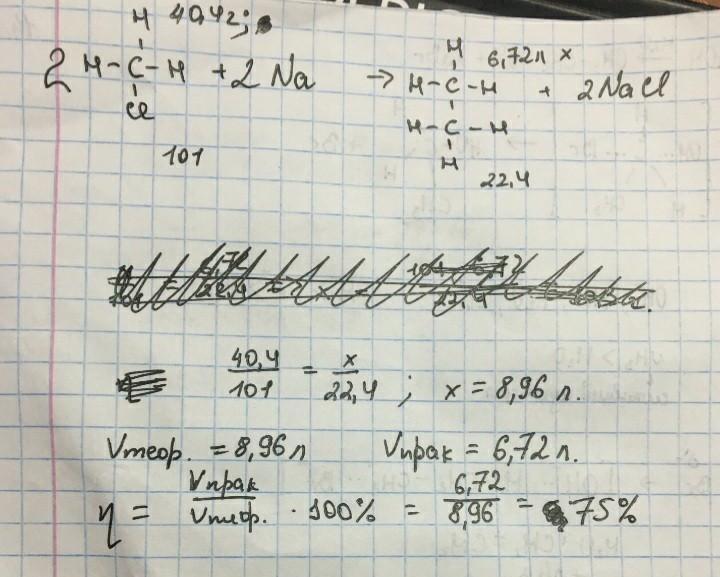 H 40,4г;
2 H-C-H + 2 Na → H-C-H + 2NaCl
Cl
H 6,72л x
H-C-H
H
101
22,4
40,4/101 = x/22,4 ; x = 8,96 л.
Vтеор. = 8,96 л Vпрак = 6,72 л.
η = Vпрак/Vтеор. · 100% = 6,72/8,96 = 75%